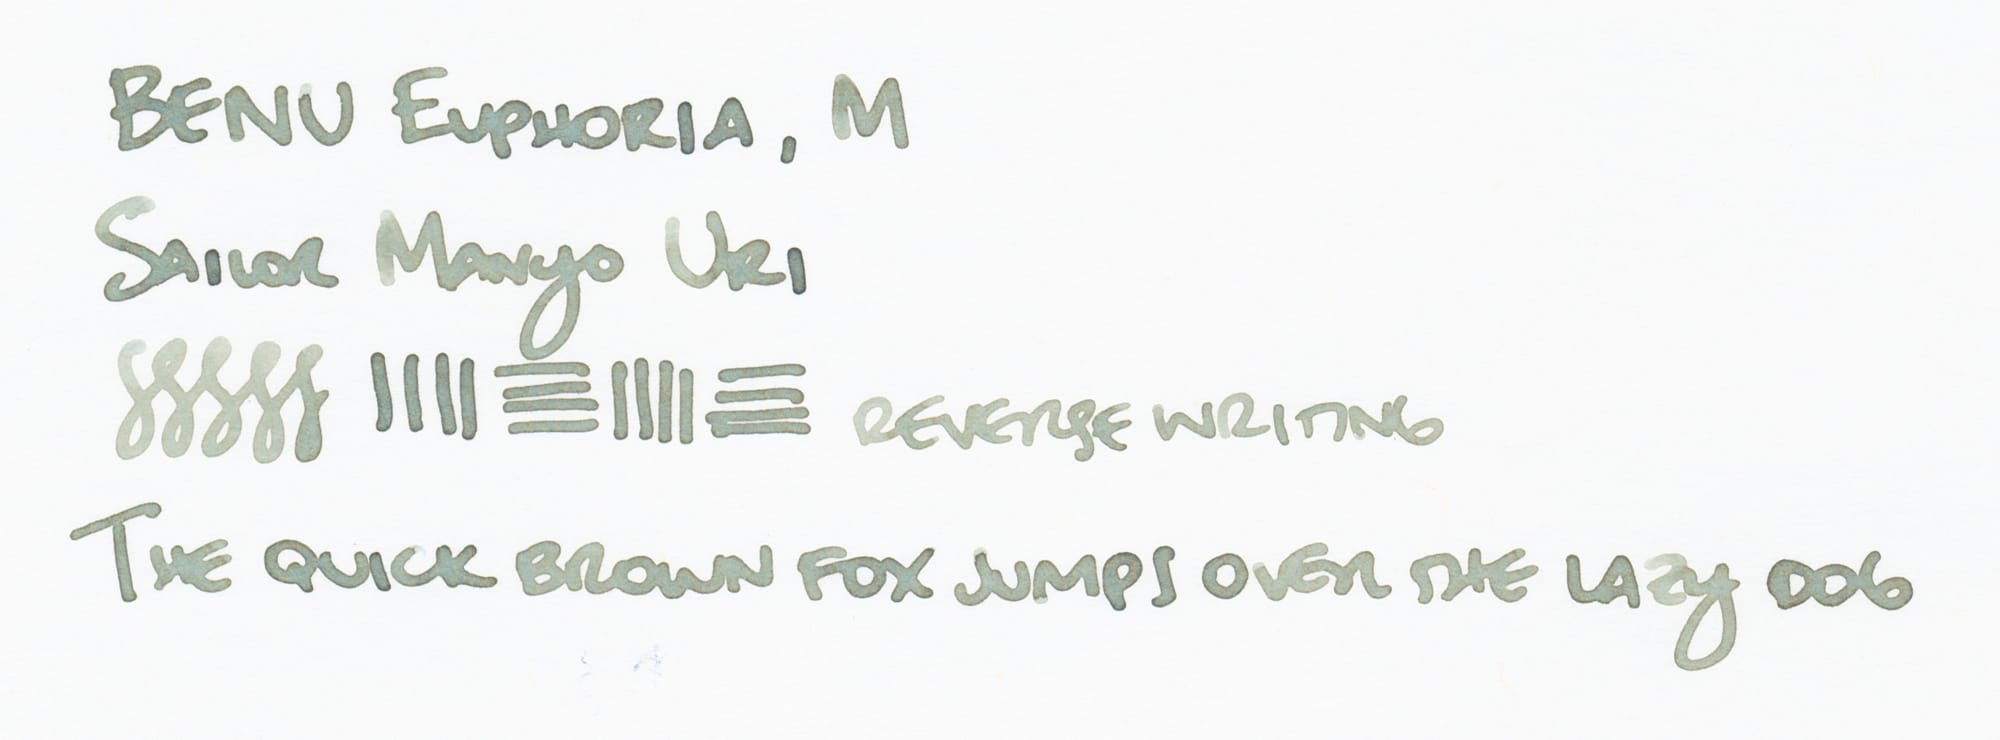 BENU EUPHORIA, M
SAILOR MANYO URI
REVERSE WRITING
THE QUICK BROWN FOX JUMPS OVER THE LAZY DOG